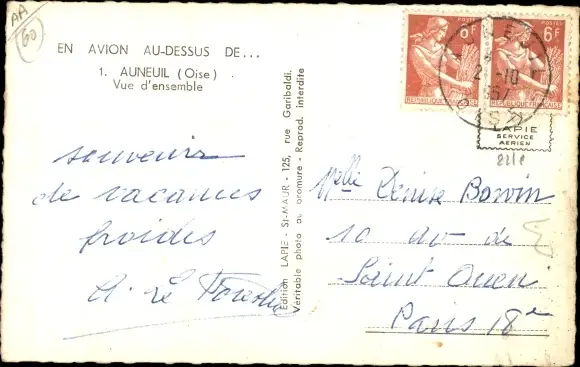 AA
60
EN AVION AU-DESSUS DE...
1. AUNEUIL (Oise)
Vue d'ensemble
souvenir
de vacances
froides
Edition LAPIE - St-MAUR - 125, rue Garibaldi.
Véritable photo au bromure - Reprod. interdite
POSTES
6F
6F
REPUBLIQUE FRANÇAISE
REPUBLIQUE FRANÇAISE
LAPIE
SERVICE
AERIEN
Mlle Denise Bowin
10 av de
Saint Ouen
Paris 18e